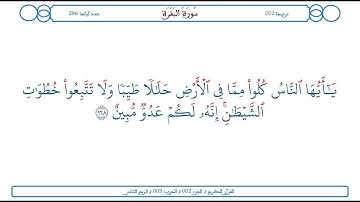 ترتيبها 002 سُورَةُ البَقَرَةِ عدد آياتها 286
يَـٰٓأَيُّهَا ٱلنَّاسُ كُلُوا۟ مِمَّا فِى ٱلْأَرْضِ حَلَـٰلًا طَيِّبًا وَلَا تَتَّبِعُوا۟ خُطُوَٰتِ
ٱلشَّيْطَـٰنِ ۚ إِنَّهُۥ لَكُمْ عَدُوٌّ مُّبِينٌ ١٦٨
القرآن الكريم / الجزء 002 / الحزب 003 / الربع الثاني